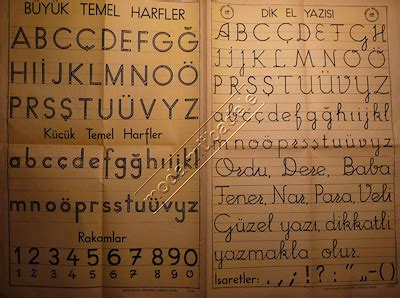 BÜYÜK TEMEL HARFLER
ABCÇDEFGĞ
HIİJKLMNOÖ
PRSŞTUÜVYZ
Küçük Temel Harfler
abcçdefgğhıijkl
mnoöprsştuüvyz
Rakamlar
1 2 3 4 5 6 7 8 9 0
1 2 3 4 5 6 7 8 9 0
DİK EL YAZISI
ABCÇDEFGĞH
IİJKLMNOÖ
PRSŞTUÜVYZ
abcçdefgğhıijkl
mnoöprsştuüvyz
Ordu, Dere, Baba
Fener, Nar, Para, Veli
Güzel yazı, dikkatli
yazmakla olur.
İşaretler: . , ; ! ? : " „ - ( )